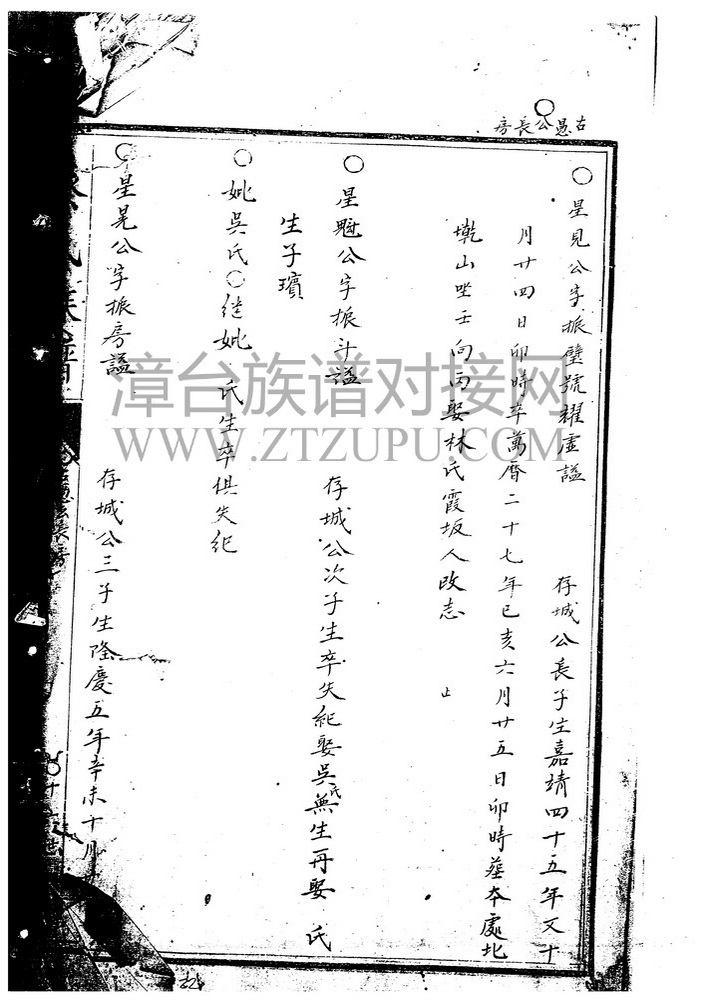 古愚公長房
星見公字振璧號耀虛謚 存城公長子生嘉靖四十五年又十
月廿四日卯時卒萬曆二十七年己亥六月廿五日卯時葬本處北
山坐壬向丙娶林氏霞坂人改志 止
星魁公字振斗謚 存城公次子生卒失紀娶吳氏無生再娶 氏
生子璸
妣吳氏○继妣 氏生卒俱失紀
星晃公字振房謚 存城公三子生隆慶五年辛未十月
族譜
長房
漳台族谱对接网
WWW.ZTZUPU.COM